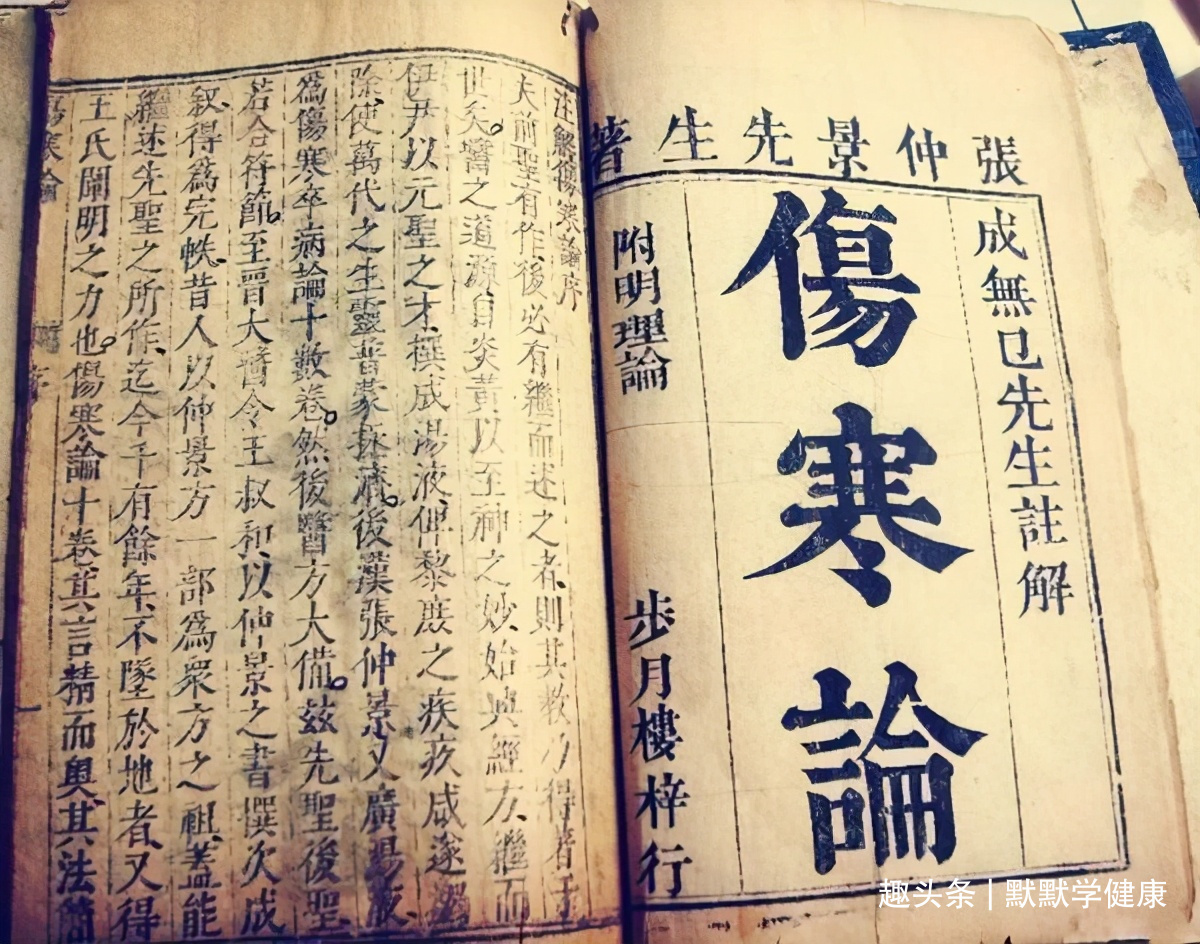 張仲景先生著
成無已先生註解
傷寒論
附明理論
步月樓梓行
注解傷寒論序
夫前聖有作後必有繼而述之者則其教乃得著于
世矣醫之道源自炎黃以至神之妙始興經方繼而
伊尹以元聖之才撰成湯液俾黎庶之疾疚咸遂蠲
除使萬代之生靈普蒙拯濟後漢張仲景又廣湯液
為傷寒卒病論十數卷然後醫方大備茲先聖後聖
若合符節至晉大醫令王叔和以仲景之書撰次成
叙得為完帙昔人以仲景方一部為衆方之祖蓋能
繼述先聖之所作迄今千有餘年不墜於地者又得
王氏闡明之力也傷寒論十卷其言精而奧其法簡
趣头条 | 默默学健康